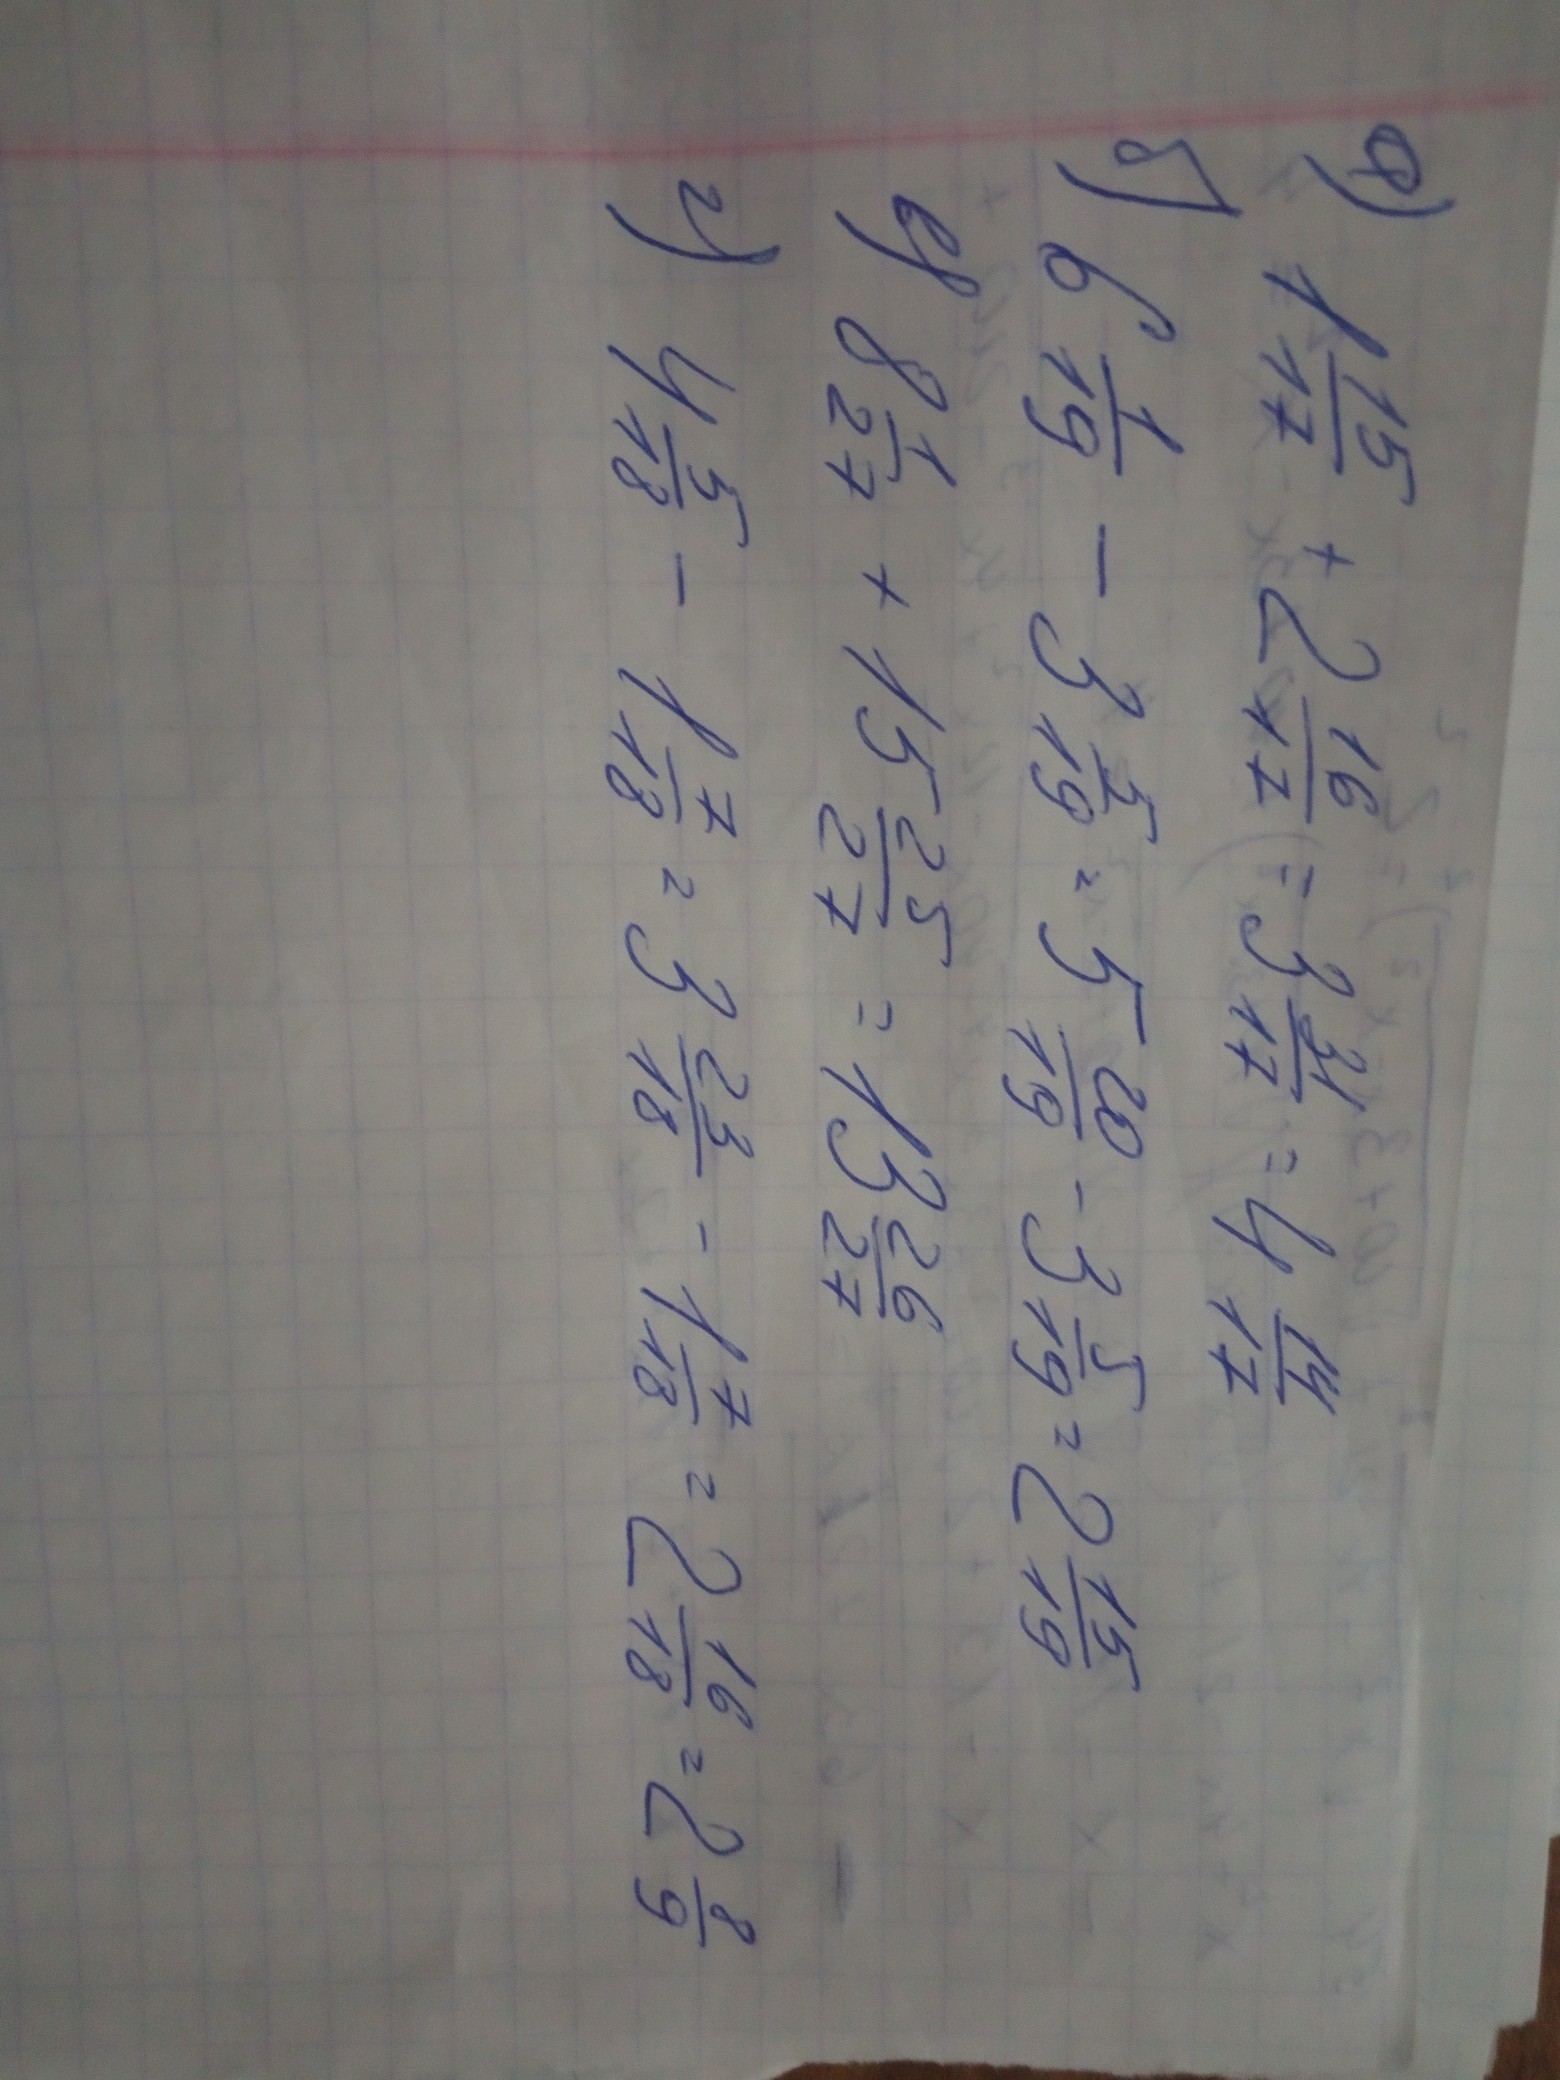 а) 1 15/17 + 2 16/17 = 3 31/17 = 4 14/17
б) 6 1/19 - 3 5/19 = 5 20/19 - 3 5/19 = 2 15/19
в) 8 1/27 + 15 25/27 = 13 26/27
г) 4 5/18 - 1 7/18 = 3 23/18 - 1 7/18 = 2 16/18 = 2 8/9